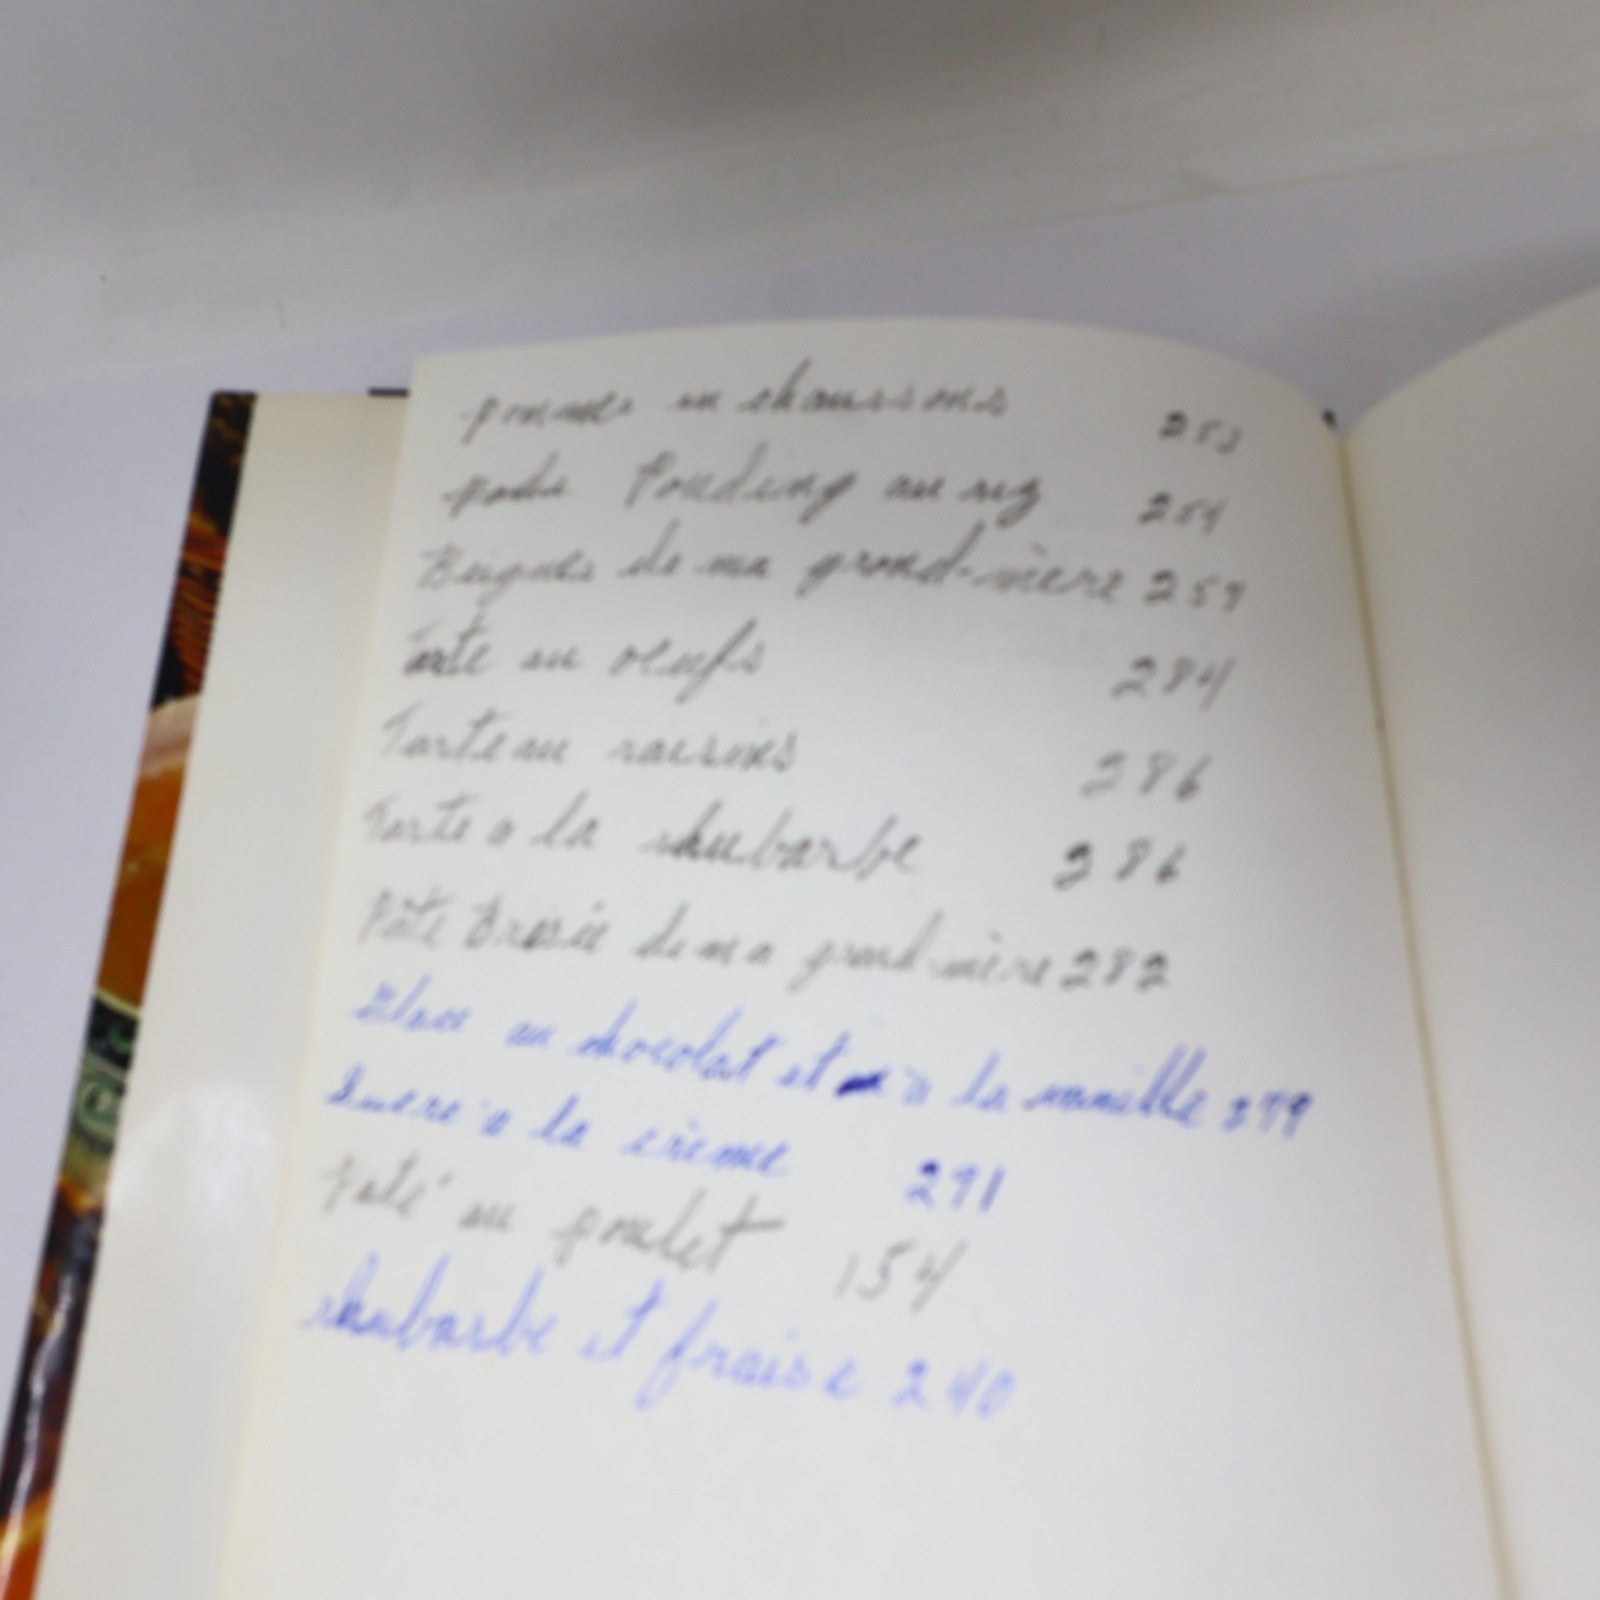 pommes en chaussons 253
Pouding au riz 254
Beignes de ma grand-mère 257
Tarte au oeufs 284
Tarte au raisins 286
Tarte a la rhubarbe 286
Pâte Brisée de ma grand-mère 282
Glace au chocolat et à la vanille 279
Sucre à la crème 291
Paté au poulet 154
rhubarbe et fraise 240